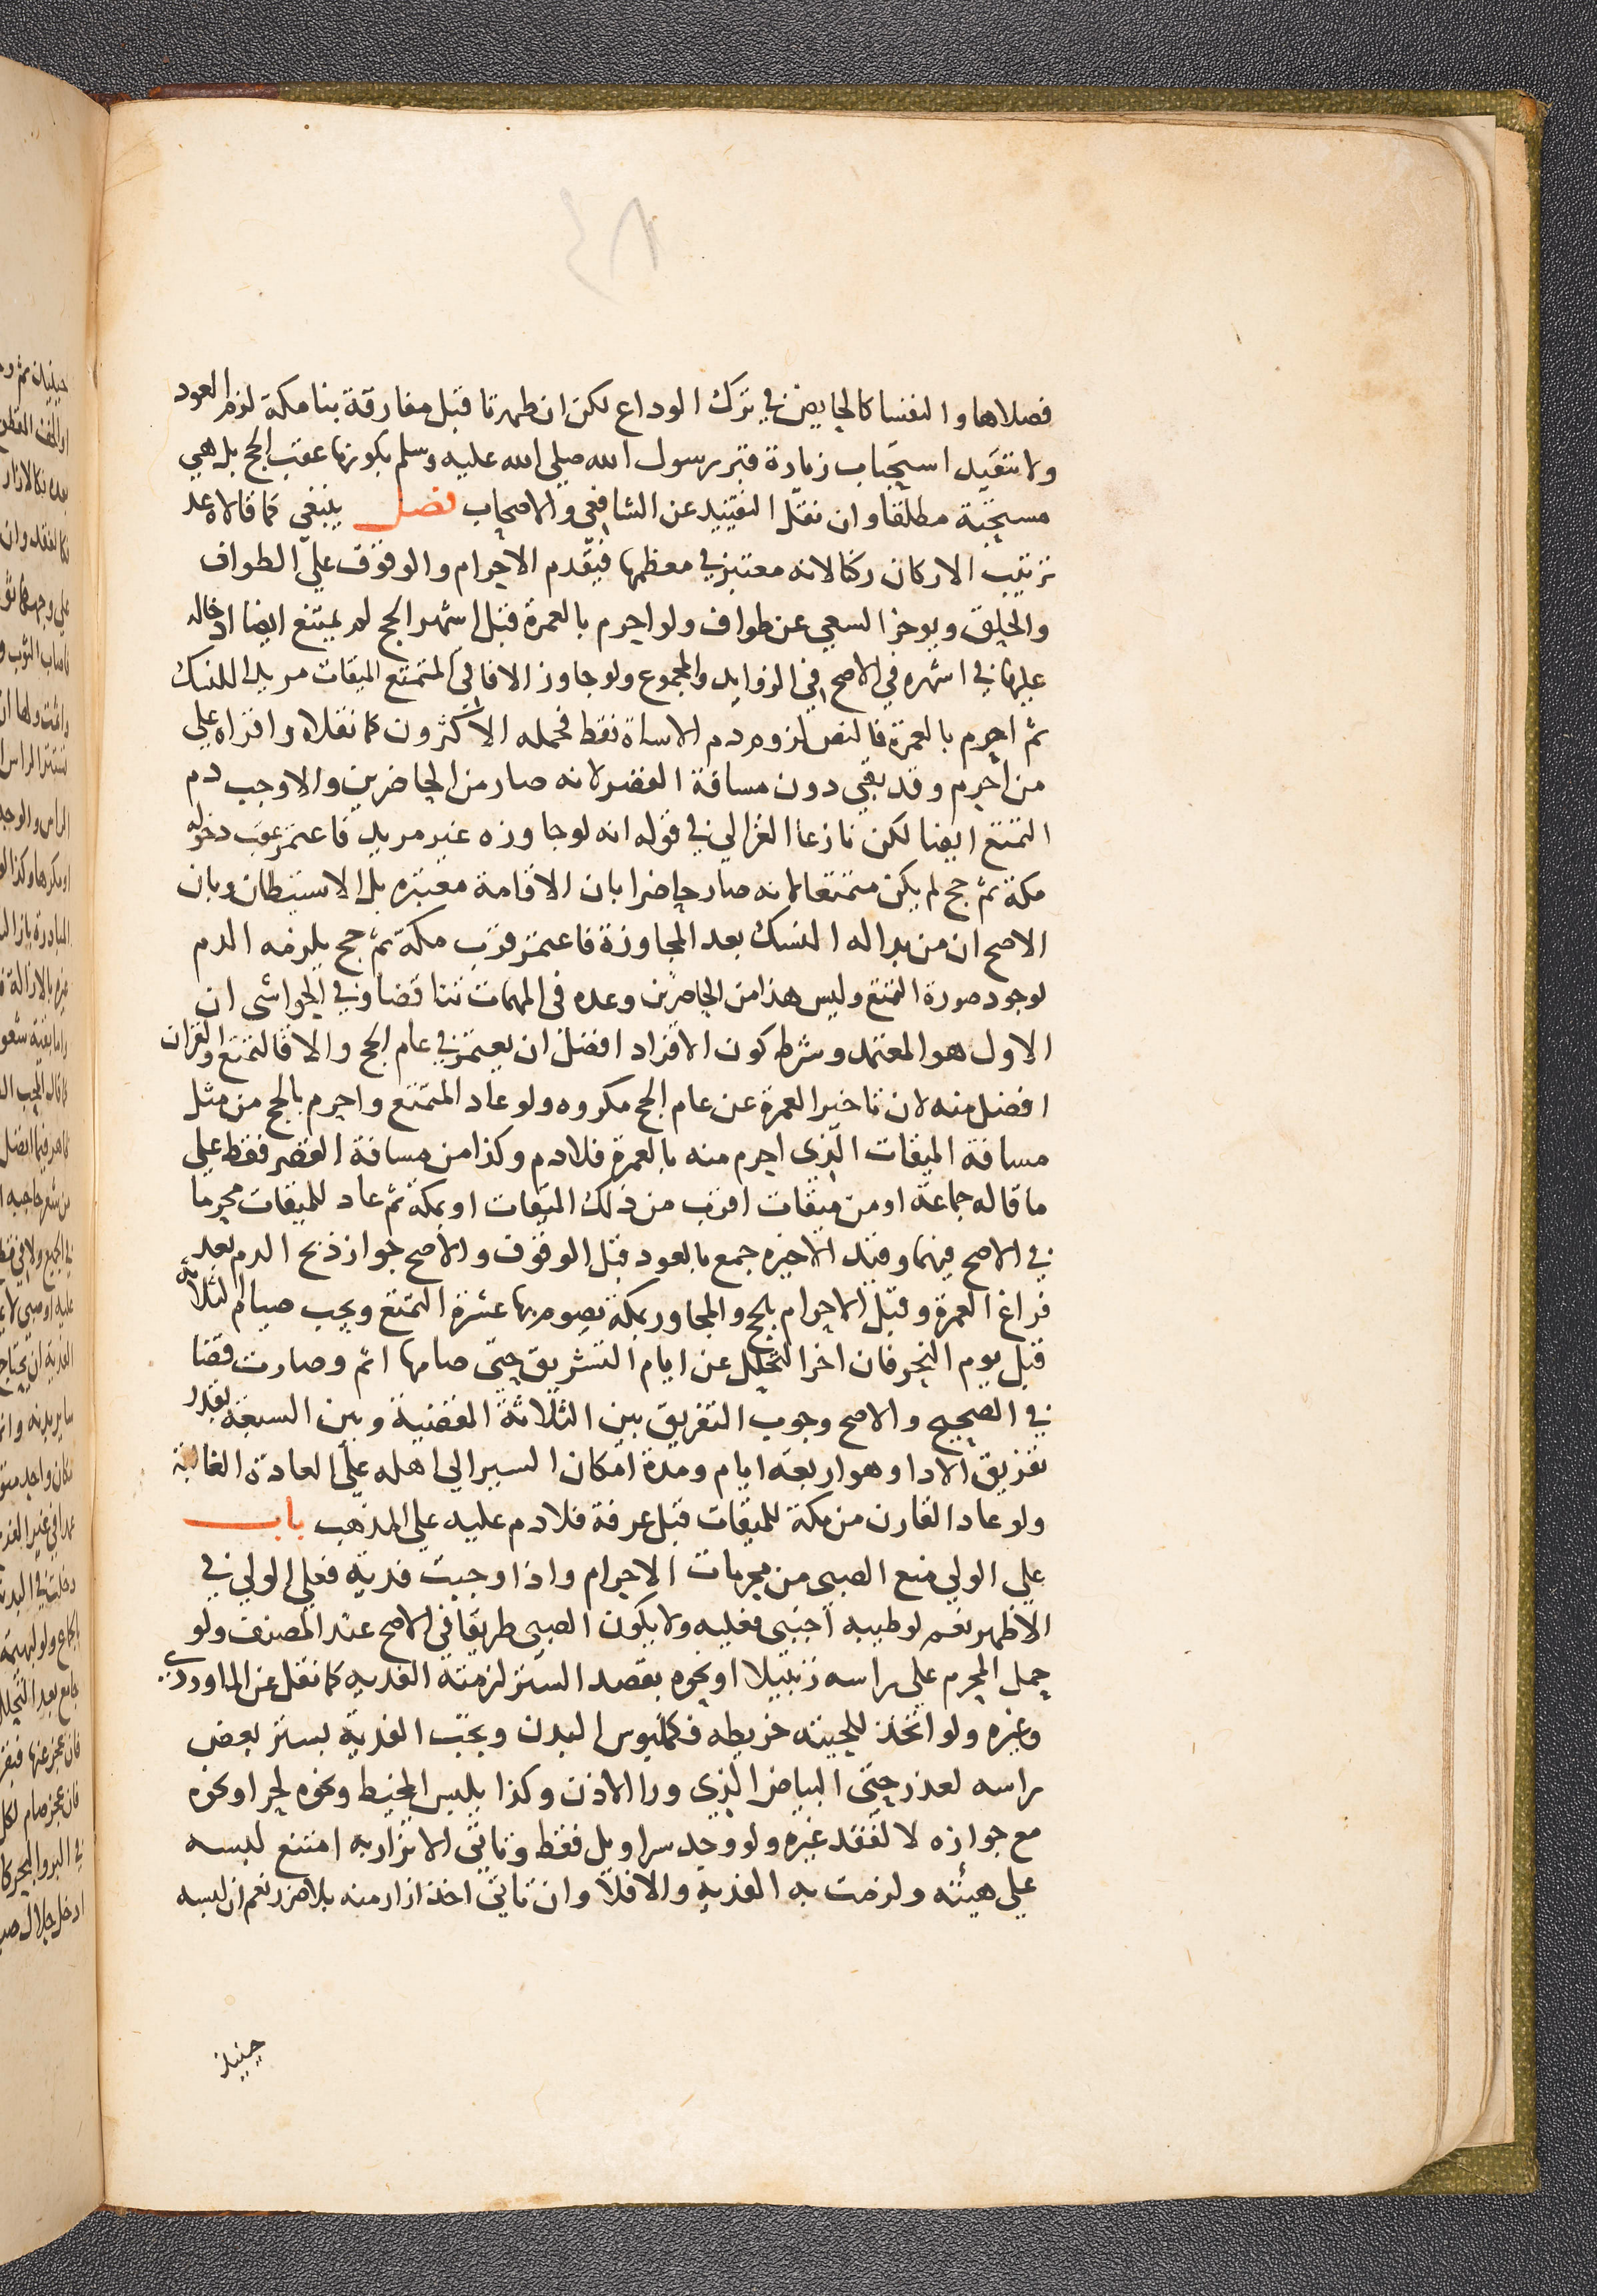 ٤٨
فصلاها والنفسا كالحايض في ترك الوداع لكن ان طهرتا قبل مفارقة بنا مكة لزم العود
ولا تتقيد استحباب زيارة قبر رسول الله صلى الله عليه وسلم بكونها عقب الحج بل هي
مستحبة مطلقا وان نقل التقييد عن الشافعي والاصحاب فصل ينبغي كما قالاه عد
ترتيب الاركان ركنا لانه معتبر في معظمها فيقدم الاحرام والوقوف على الطواف
والحلق ويوخر السعي عن طواف ولو احرم بالعمرة قبل اشهر الحج لم يمتنع ايضا ادخاله
عليها في اشهره في الاصح في الزوايد والمجموع ولو جاوز الافاقي المتمتع الميقات مريدا للنسك
ثم احرم بالعمرة فالنص لزوم دم الاساة فقط فحمله الاكثرون كما نقلاه واقراه على
من احرم وقد بقي دون مسافة القصر لانه صار من الحاضرين والا وجب دم
التمتع ايضا لكن نازعا الغزالي في قوله انه لو جاوزه غير مريد فاعتمر عقب دخوله
مكة ثم حج لم يكن متمتعا لانه صار حاضرا بان الاقامة معتبره بل الاستيطان وبان
الاصح ان من بدا له النسك بعد المجاوزة فاعتمر قرب مكة ثم حج يلزمه الدم
لوجود صورة التمتع وليس هذا من الحاضرين وعده في المهمات تناقضا وفي الحواشى ان
الاول هو المعتمد وشرط كون الافراد افضل ان يعتمر في عام الحج والا فالتمتع والقران
افضل منه لان تاخير العمرة عن عام الحج مكروه ولو عاد المتمتع واحرم بالحج من مثل
مسافة الميقات الذى احرم منه بالعمرة فلا دم وكذا من مسافة القصر فقط على
ما قاله جماعة او من ميقات اقرب من ذلك الميقات او بمكة ثم عاد للميقات محرما
في الاصح فيهما وقيد الاخيره جمع بالعود قبل الوقوف والاصح جواز ذبح الدم بعد
فراغ العمرة وقبل الاحرام بالحج والمجاور بمكة يصوم بها عشرة التمتع ويجب صيام الثلاثة
قبل يوم النحر فان اخر التحلل عن ايام التشريق حتى صامها اثم وصارت قضا
في الصحيح والاصح وجوب التفريق بين الثلاثة المقضية وبين السبعة بقدر
تفريق الادا وهو اربعة ايام ومدة امكان السير الى اهله على العادة الغالبة
ولو عاد القارن من مكة للميقات قبل عرفة فلا دم عليه على المذهب باب
على الولي منع الصبي من محرمات الاحرام واذا وجبت فدية فعلى الولي في
الاظهر نعم لو طيبه اجنبى فعليه ولا يكون الصبي طريقا في الاصح عند المصنف ولو
حمل المحرم على راسه زنبيلا او نحوه بقصد الستر لزمته الفديه كما نقل عن الماوردى
وغيره ولو اتخذ للحيته خريطه فكملبوس البدن وتجب الفدية بستر بعض
راسه لعذر حتى البياض الذي ورا الاذن وكذا بلبس المخيط ونحوه لحر او نحوه
مع جوازه لا لفقد غيره ولو وجد سراويل فقط وتاتى الاتزار به امتنع لبسه
على هيئته ولزمت به الفديه والا فلا وان تاتى اخذ ازار منه بلا ضرر نعم ان لبسه
حينيذ